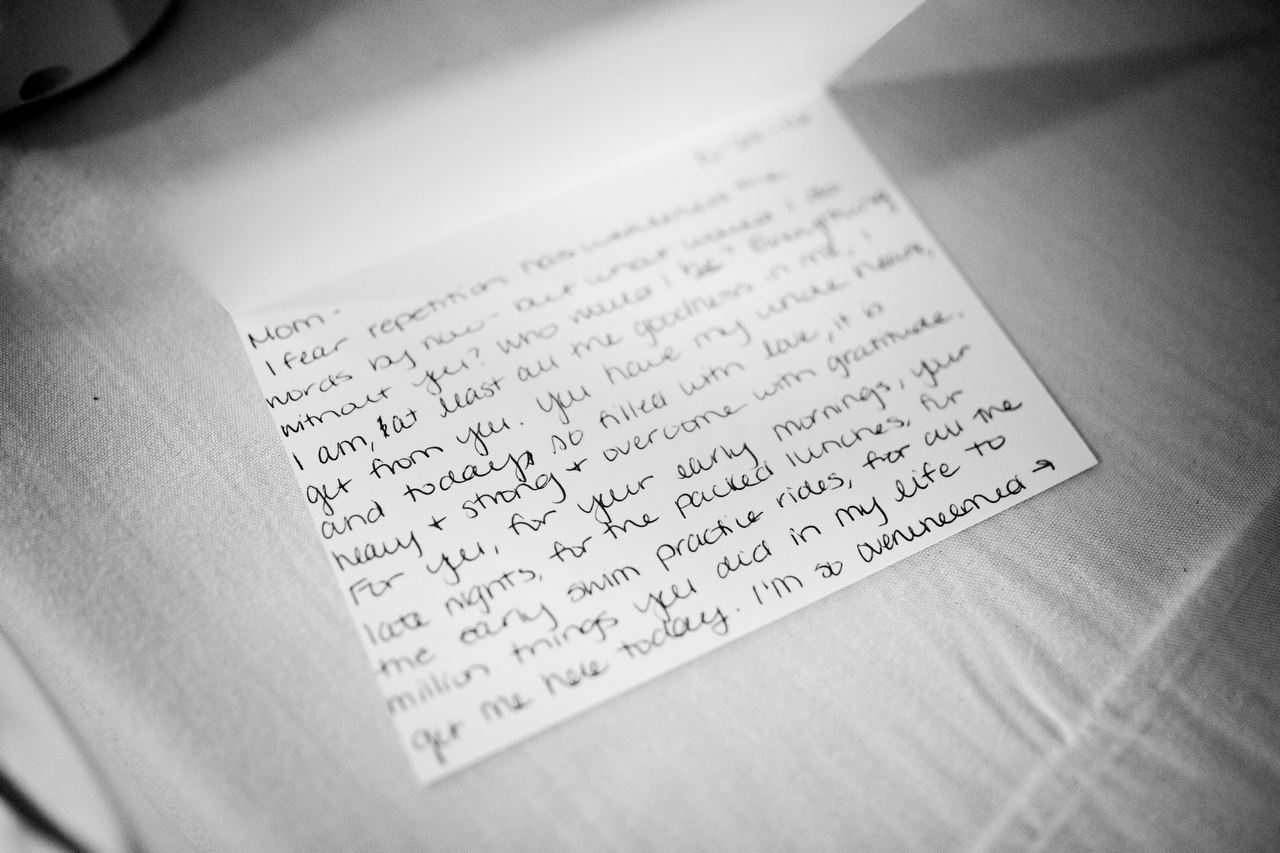 Mom-
I fear repetition has weakened the
words by now- but what would I do
without you? Who would I be? Everything
I am, at least all the goodness in me, I
get from you. You have my whole heart,
and today, so filled with love, it is
heavy + strong + overcome with gratitude.
For you, for your early mornings, your
late nights, for the packed lunches, for
the early swim practice rides, for all the
million things you did in my life to
get me here today. I'm so overwhelmed →